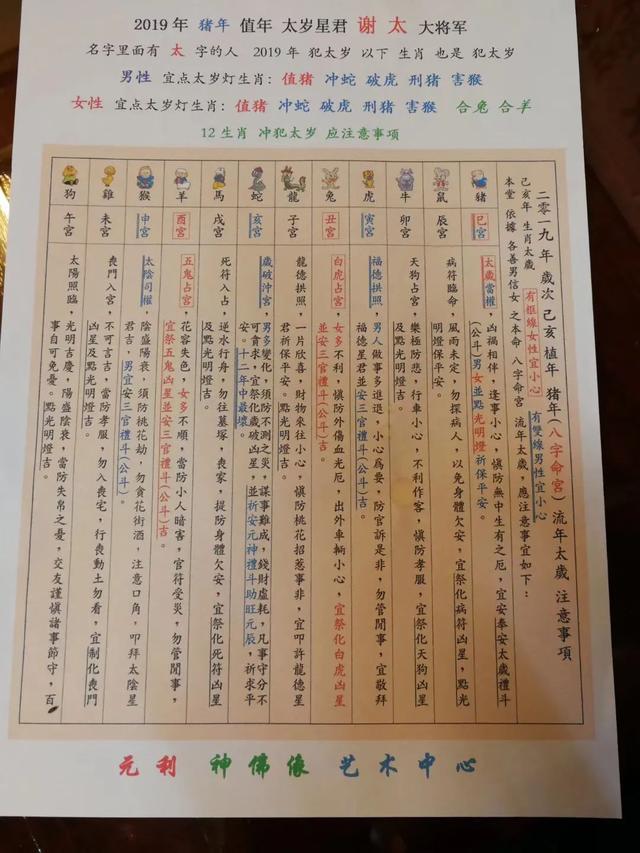 2019年 猪年 值年 太岁星君 谢太 大将军
名字里面有 太 字的人 2019年 犯太岁 以下 生肖 也是 犯太岁
男性 宜点太岁灯生肖: 值猪 冲蛇 破虎 刑猪 害猴
女性 宜点太岁灯生肖: 值猪 冲蛇 破虎 刑猪 害猴 合兔 合羊
12生肖 冲犯太岁 应注意事项
二零一九年歲次己亥植年豬年(八字命宮)流年太歲注意事項
己亥年 生肖太歲 有框線女性宜小心 有雙線男性宜小心
本堂 依據 各善男信女之本命 八字命宮 流年太歲,應注意事宜如下:
豬
巳宮
太歲當權,凶禍相伴,逢事小心,慎防無中生有之厄,宜安奉安太歲禮斗
(公斗)男女並點光明燈祈保平安。
鼠
辰宮
病符臨命,風雨未定,勿探病人,以免身體欠安,宜祭化病符凶星,點光
明燈保平安。
牛
卯宮
天狗占宮,樂極防悲,行車小心,不利作客,慎防孝服,宜祭化天狗凶星
及點光明燈吉。
虎
寅宮
福德拱照,男人做事多進退,小心為要,防官訴是非,勿管閒事,宜敬拜
福德星君並安三官禮斗(公斗)吉。
兔
丑宮
白虎占宮,女多不利,慎防外傷血光厄,出外車輛小心,宜祭化白虎凶星
並安三官禮斗(公斗)吉。
龍
子宮
龍德拱照,一片欣喜,財物來往小心,慎防桃花招惹事非,宜叩許龍德星
君祈保平安。
蛇
亥宮
歲破沖宮,男多變化,須防不測之災,謀事難成,錢財虛耗,凡事守分不
可貪求,宜祭化歲破凶星,並祈安元神禮斗助旺元辰,祈求平
安。十二年中最壞。
馬
戌宮
死符入占,逆水行舟,勿往墓塚,喪家,提防身體欠安,宜祭化死符凶星
及點光明燈吉。
羊
酉宮
五鬼占宮,花容失色,女多不順,當防小人暗害,官符受災,勿管閒事,
宜祭五鬼凶星並安三官禮斗(公斗)吉。
猴
申宮
太陰司權,陰盛陽衰,須防桃花劫,勿貪花街酒,注意口角,叩拜太陰星
君吉,男宜安三官禮斗(公斗)。
雞
未宮
喪門入宮,不可言吉,當防孝服,勿入喪宅,行喪動土勿看,宜制化喪門
凶星及點光明燈吉。
狗
午宮
太陽照臨,光明吉慶,陽盛陰衰,當防失帛之憂,交友謹慎諸事節守,百
事自可免憂。點光明燈吉。
元利 神佛像 艺术中心